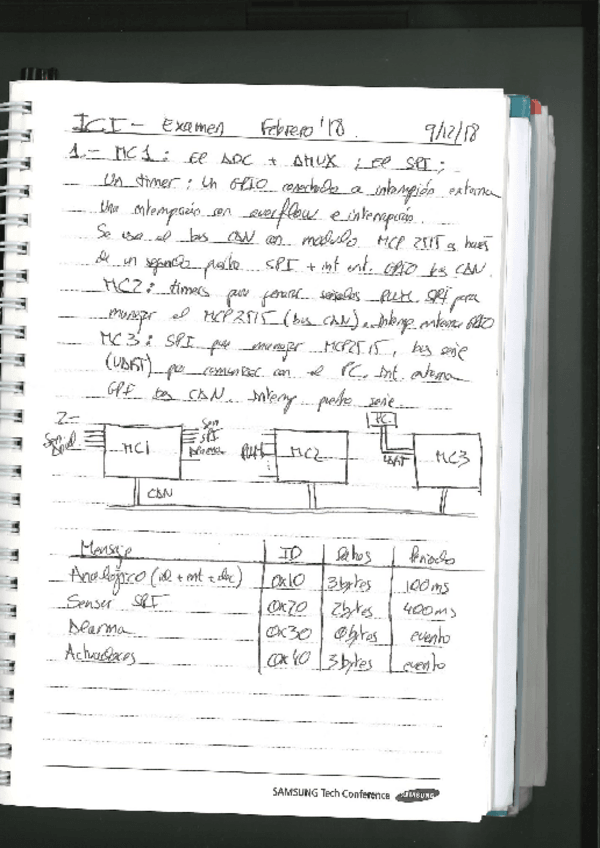 ICI - Examen Febrero '18. 9/12/18
1.- MC1: el ADC + AMUX; el SPI;
Un timer; Un GPIO conectado a interrupción externa
Una interrupción con overflow e interrupción.
Se usa el bus CAN con modulo MCP 2515 a través
de un segundo puerto SPI + int ext. GPIO bus CAN.
MC2: timers para generar señales PWM. SPI para
manejar el MCP2515 (bus CAN). Interrup externa GPIO
MC3: SPI para manejar MCP2515, bus serie
(UART) para comunicar con el PC. Int. externa
bus CAN. Interrup puerto serie.
2.-
Sen
SPI
PC
MC1
PWM
MC2
UART
MC3
CAN
Mensaje ID Datos Periodo
Analógico (id + int + dec) 0x10 3 bytes 100ms
Sensor SPI 0x20 2 bytes 400ms
Alarma 0x30 0 bytes evento
Actuadores 0x40 3 bytes evento
SAMSUNG Tech Conference SAMSUNG